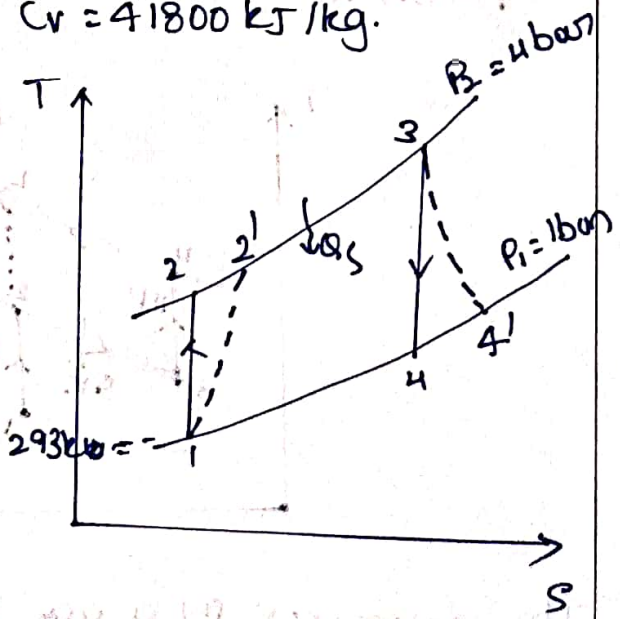 Cv = 41800 kJ/kg.
T
P2 = 4bar
3
2'
2
Qs
P1 = 1bar
4'
4
293k
1
S